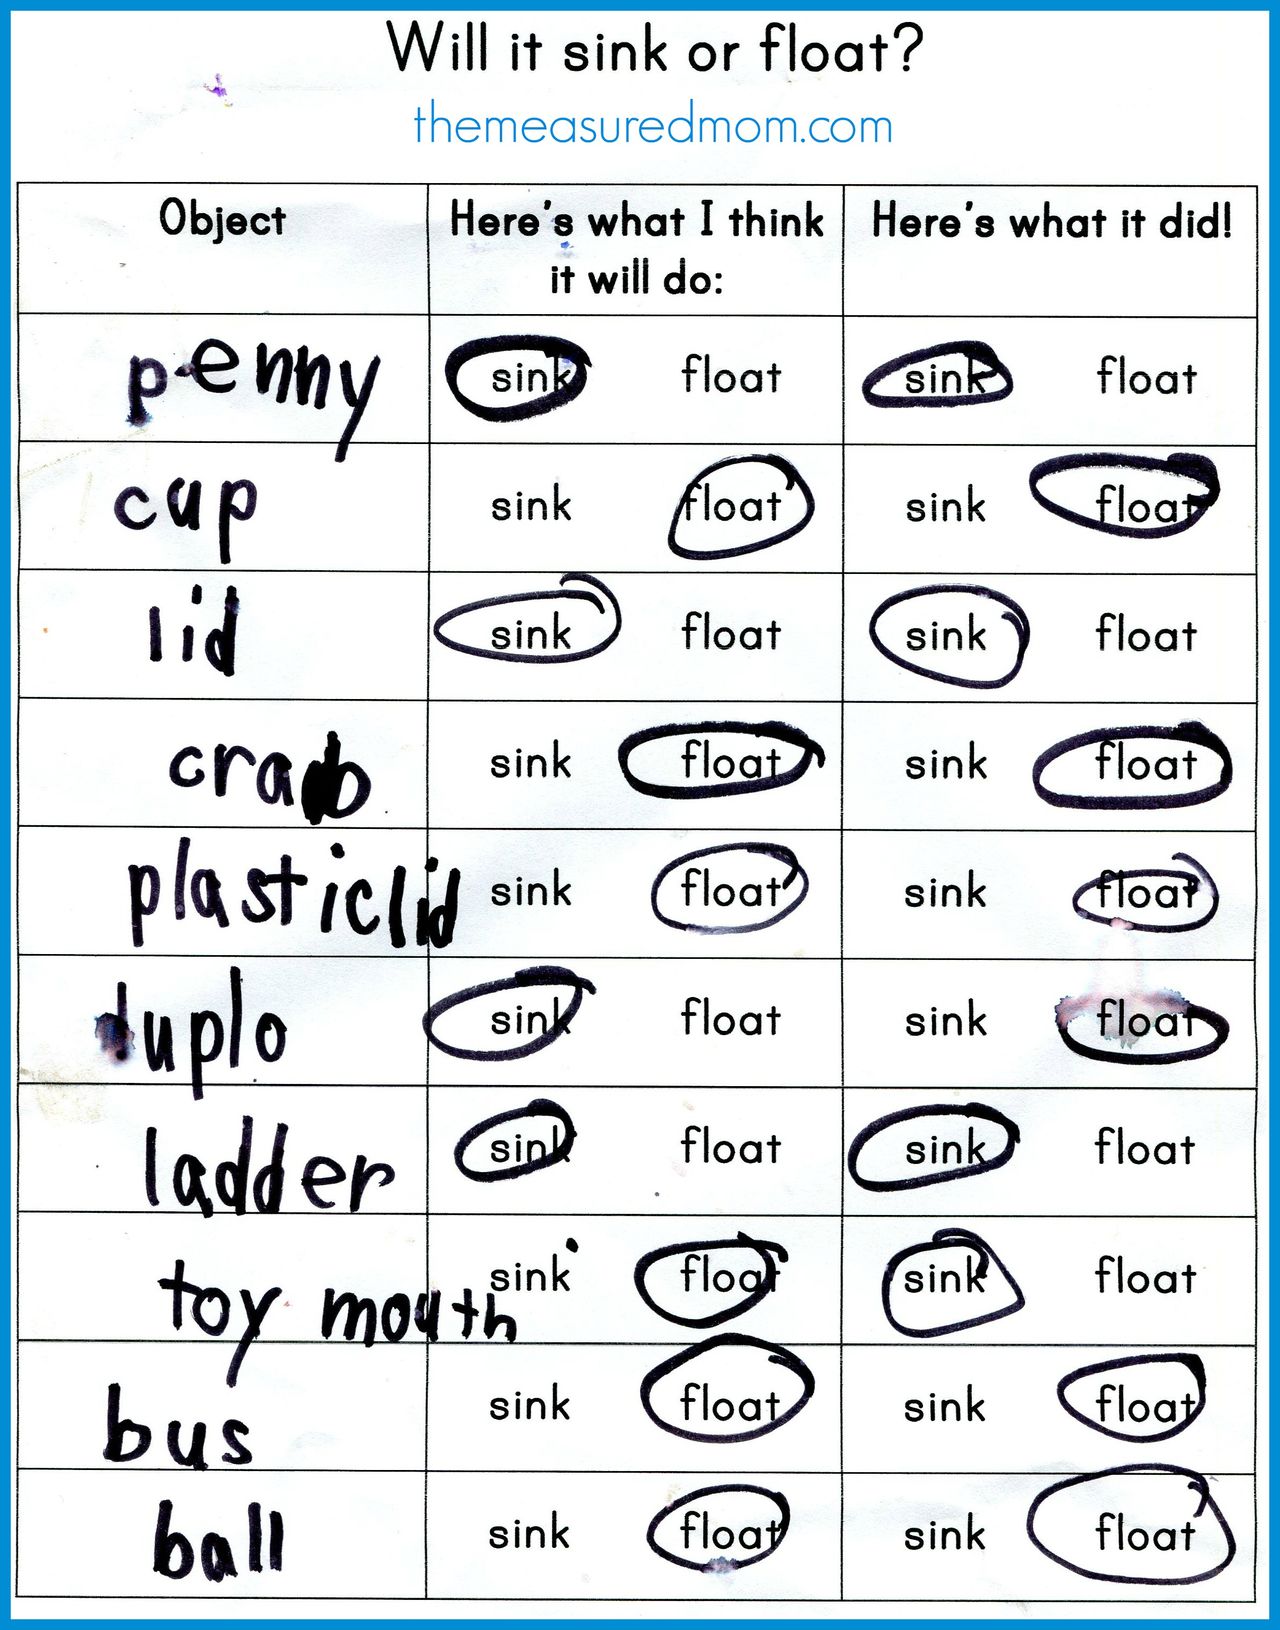 Will it sink or float?
themeasuredmom.com
Object Here's what I think it will do: Here's what it did!
penny sink float sink float
cup sink float sink float
lid sink float sink float
crab sink float sink float
plasticlid sink float sink float
duplo sink float sink float
ladder sink float sink float
toy mouth sink float sink float
bus sink float sink float
ball sink float sink float